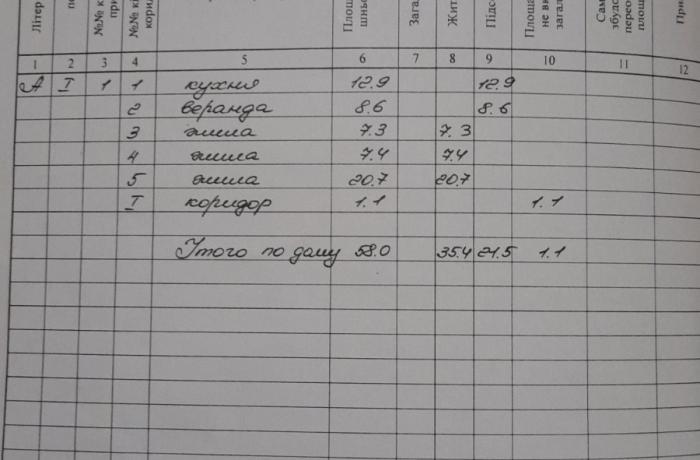 Літер
№№ к
№№ кі
кори
Площ
шньо
Зага
Жит
Підсо
Площа
не вк
загал
Сам
збудо
перео
площ
При
1 2 3 4 5 6 7 8 9 10 11 12
А I 1 1 кухня 12.9 12.9
2 веранда 8.6 8.6
3 жила 7.3 7.3
4 жила 7.4 7.4
5 жила 20.7 20.7
I коридор 1.1 1.1
Итого по дому 58.0 35.4 21.5 1.1